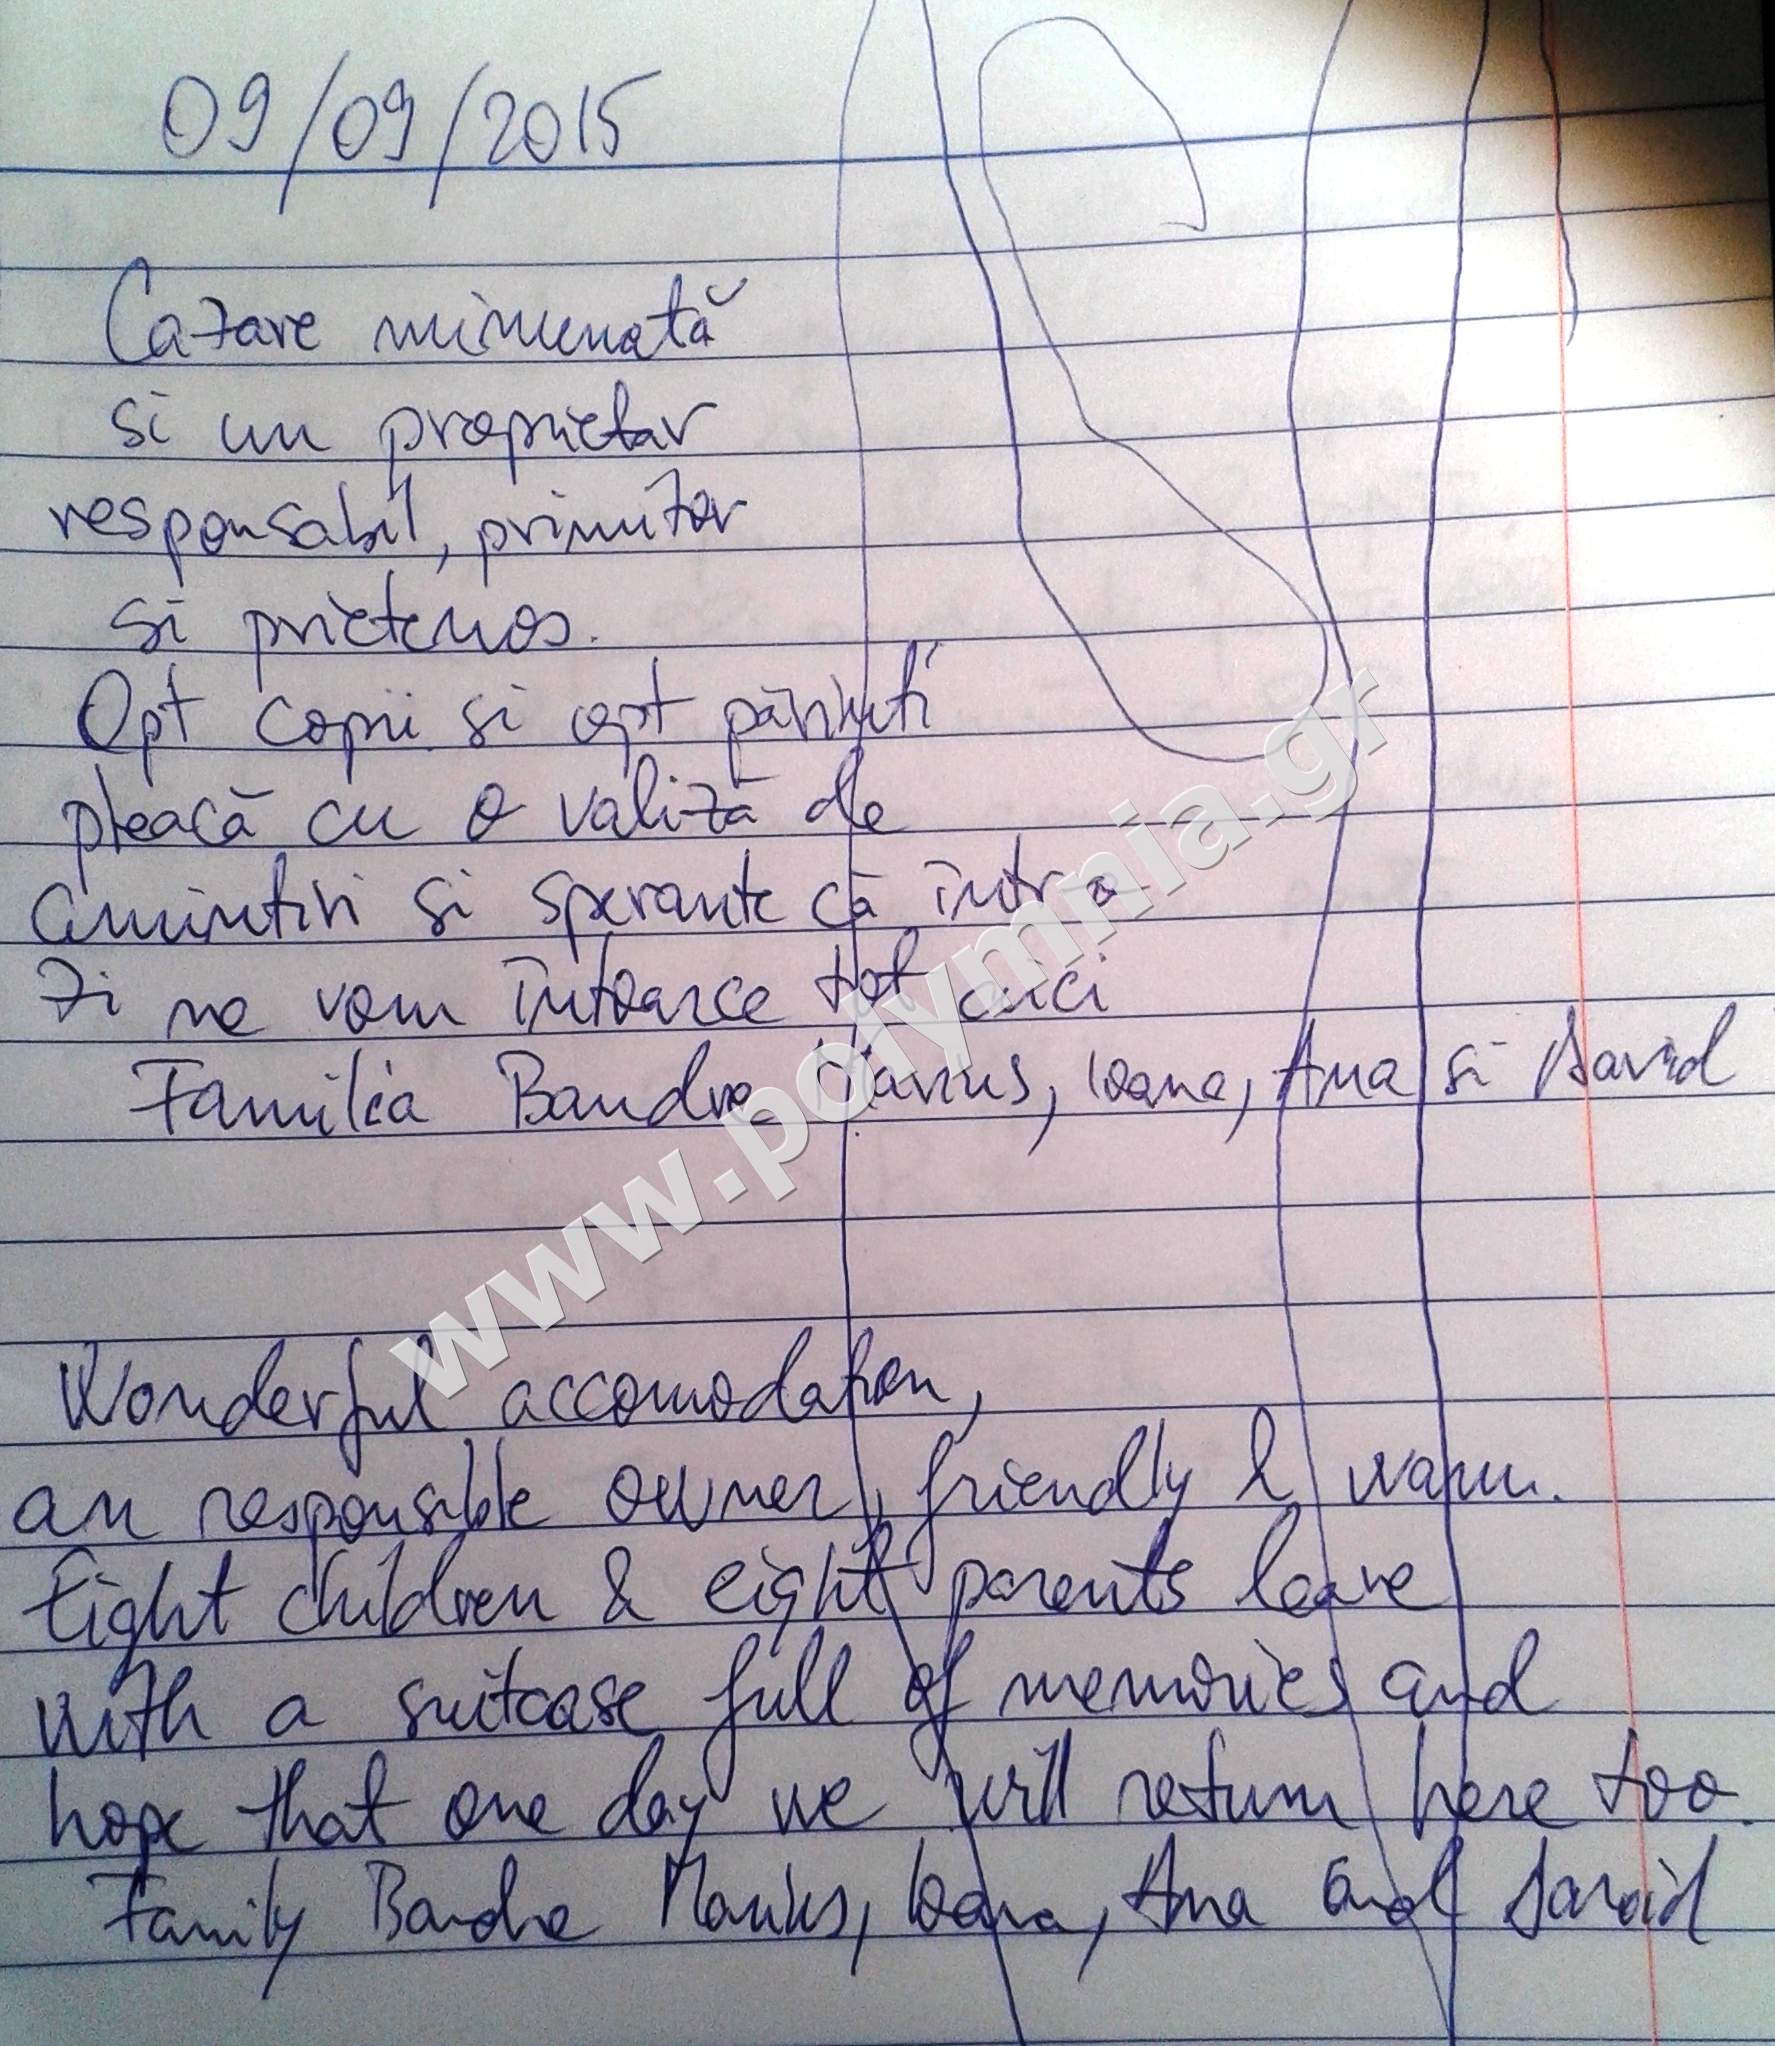 09/09/2015
Cazare minunată
si un proprietar
responsabil, primitor
si prietenos.
Opt copii si opt părinti
pleacă cu o valiză de
amintiri si sperante că într o
zi ne vom întoarce tot aici
Familia Bandra Marius, Ioana, Ana si David
Wonderful accomodation,
an responsible owner, friendly & warm.
Eight children & eight parents leave
with a suitcase full of memories and
hope that one day we will return here too.
Family Bandra Marius, Ioana, Ana and David
www.polymnia.gr